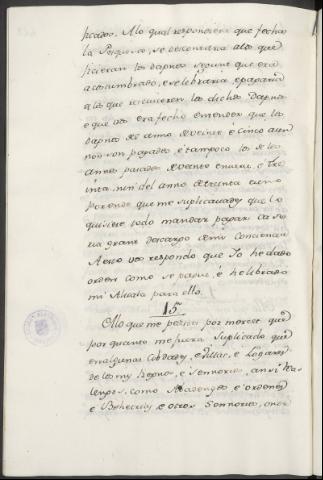 ficados. Alo qual respondieron que fechas
la Pesquisa, se descontaria alos que
ficieran los dapnos segunt que era
acostumbrado, e se libraria, e pagaria
a los que recivieren los dichos Dapnos
e que vos era fecho entender que los
dapnos del anno de veinte e cinco aun
non son pagados, e tampoco los de los
annos pasados de veinte e nueve, e Tre
inta, nin del anno de treinta e uno
porende que me suplicavades que lo
quisiese todo mandar pagar ca se
ria grant descargo de mi conciencia
A esto vos respondo que Yo he dado
orden como se pague, é he librado
mi Alvala para ello.
15
Alo que me pedistes por merced que
por quanto me fuera suplicado que
en algunas Cibdades, e Villas, e Logares
de los mis Regnos, e Sennorios, ansi Rea
lengos, como Abadengos e ordenes
e Behetrias e otros Sennorios, onos